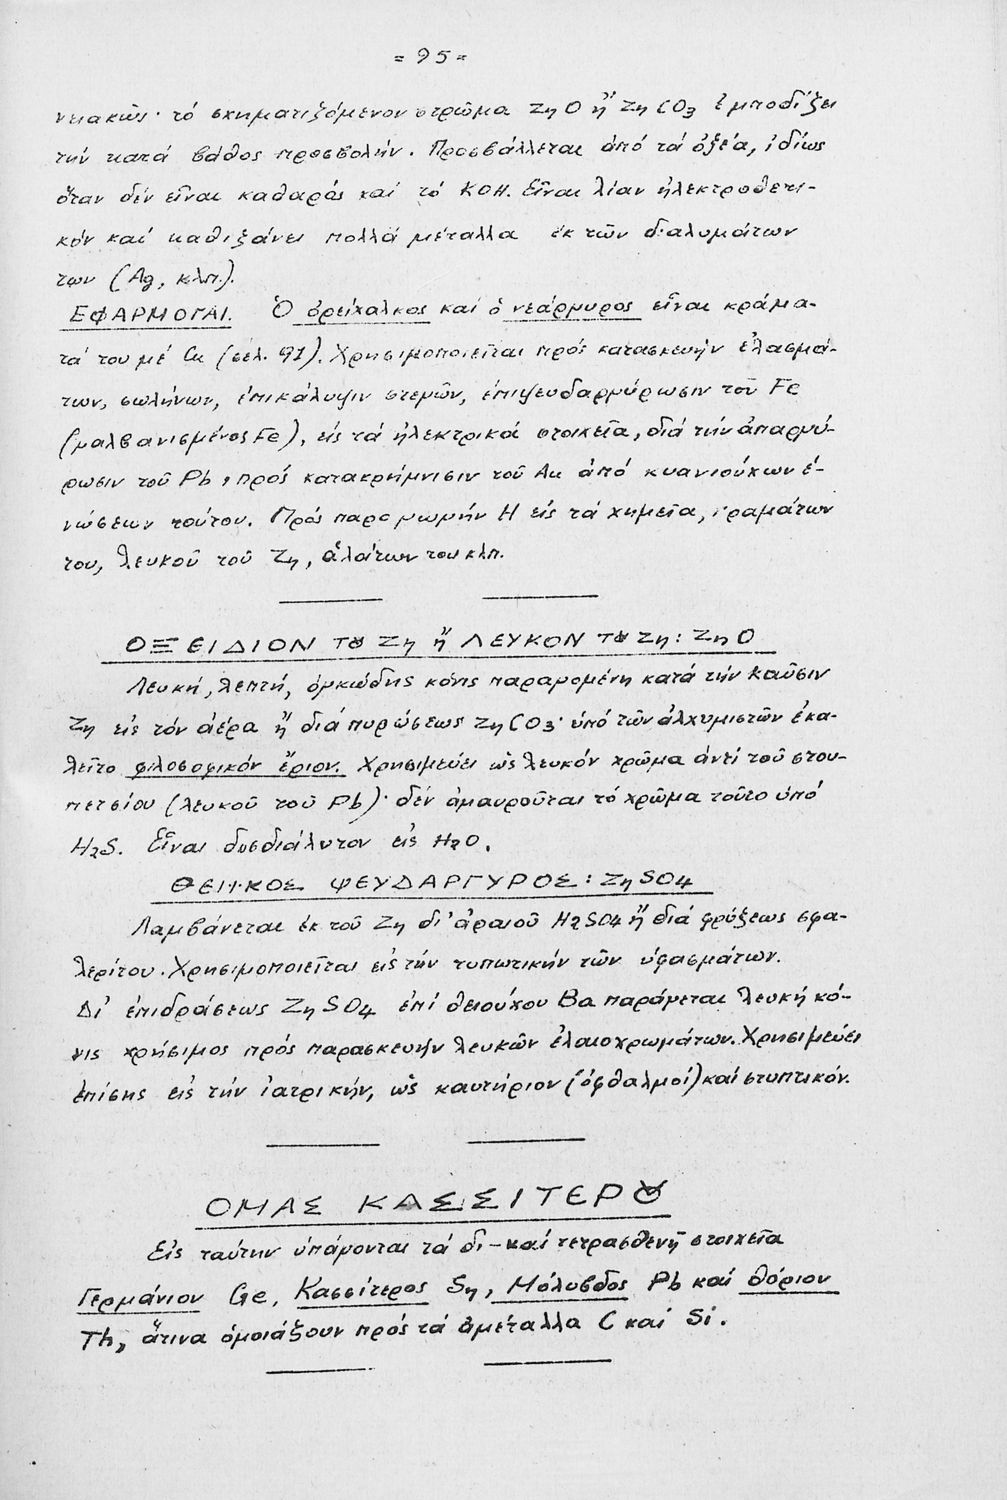 = 95 =
νειακῶς· τό σχηματιζόμενον στρῶμα ZnO ἤ ZnCO3 ἐμποδίζει
τήν κατά βάθος προσβολήν. Προσβάλλεται ἀπό τά ὀξέα, ἰδίως
ὅταν δέν εἶναι καθαρός καί τό ΚΟΗ. Εἶναι λίαν ἠλεκτροθετι-
κόν καί καθιζάνει πολλά μέταλλα ἐκ τῶν διαλυμάτων
των (Ag, κλπ.).
ΕΦΑΡΜΟΓΑΙ. Ὁ ὀρείχαλκος καί ὁ νεάργυρος εἶναι κράμα-
τά του μέ Cu (σελ. 91). Χρησιμοποιεῖται πρός κατασκευήν ἐλασμά-
των, σωλήνων, ἐπικάλυψιν στεγῶν, ἐπιψευδαργύρωσιν τοῦ Fe
(γαλβανισμένος Fe), εἰς τά ἠλεκτρικά στοιχεῖα, διά τήν ἀπαργύ-
ρωσιν τοῦ Pb, πρός κατακρήμνισιν τοῦ Au ἀπό κυανιούχων ἑ-
νώσεων τούτου. Πρός παραγωγήν Η εἰς τά χημεῖα, κραμάτων
του, λευκοῦ τοῦ Zn, ἁλάτων του κλπ.
ΟΞΕΙΔΙΟΝ ΤȢ Zn ἤ ΛΕΥΚΟΝ ΤȢ Zn: ZnO
Λευκή, λεπτή, ὀγκώδης κόνις παραγομένη κατά τήν καῦσιν
Zn εἰς τόν ἀέρα ἤ διά πυρώσεως ZnCO3· ὑπό τῶν ἀλχυμιστῶν ἐκα-
λεῖτο φιλοσοφικόν ἔριον. Χρησιμεύει ὡς λευκόν χρῶμα ἀντί τοῦ στου-
πετσίου (λευκοῦ τοῦ Pb)· δέν ἀμαυροῦται τό χρῶμα τοῦτο ὑπό
H2S. Εἶναι δυσδιάλυτον εἰς H2O.
ΘΕΙΙΚΟΣ ΨΕΥΔΑΡΓΥΡΟΣ: ZnSO4
Λαμβάνεται ἐκ τοῦ Zn δι' ἀραιοῦ H2SO4 ἤ διά φρύξεως σφα-
λερίτου. Χρησιμοποιεῖται εἰς τήν τυπωτικήν τῶν ὑφασμάτων.
Δι' ἐπιδράσεως ZnSO4 ἐπί θειούχου Ba παράγεται λευκή κό-
νις χρήσιμος πρός παρασκευήν λευκῶν ἐλαιοχρωμάτων. Χρησιμεύει
ἐπίσης εἰς τήν ἰατρικήν, ὡς καυτήριον (ὀφθαλμοί) καί στυπτικόν.
ΟΜΑΣ ΚΑΣΣΙΤΕΡȢ
Εἰς ταύτην ὑπάγονται τά δι-καί τετρασθενῆ στοιχεῖα
Γερμάνιον Ge, Κασσίτερος Sn, Μόλυβδος Pb καί Θόριον
Th, ἅτινα ὁμοιάζουν πρός τά ἀμέταλλα C καί Si.